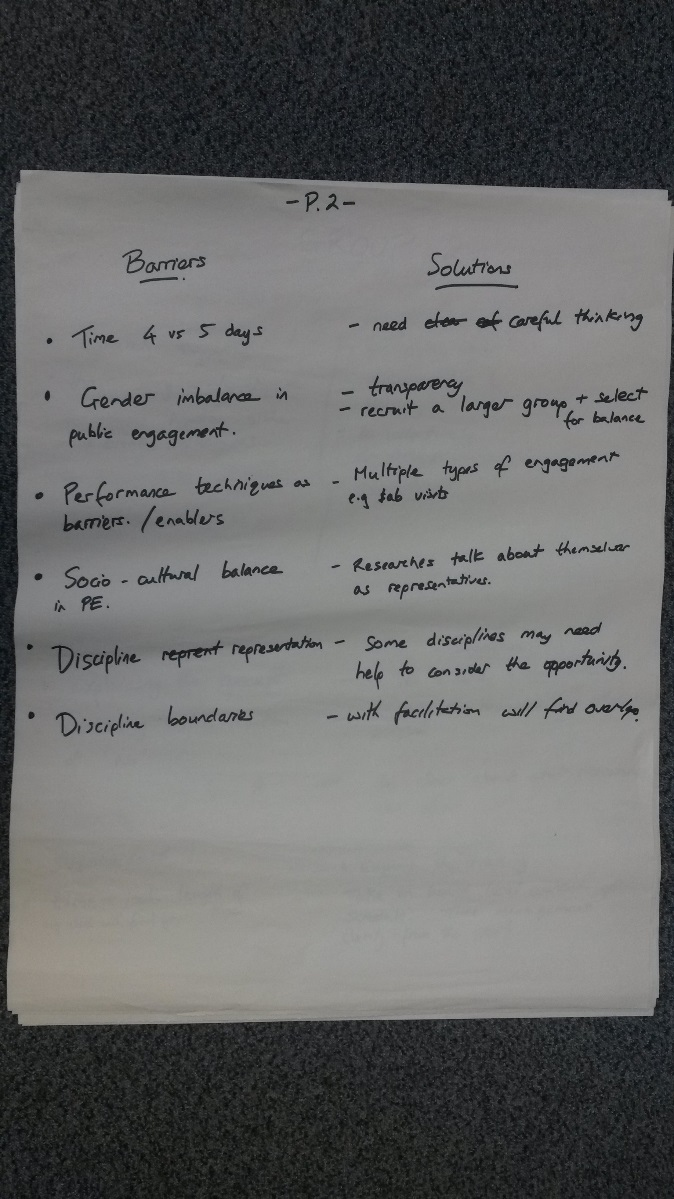 - P. 2 -
Barriers
Solutions
• Time 4 vs 5 days
- need careful thinking
• Gender imbalance in
public engagement.
- transparency
- recruit a larger group + select
for balance
• Performance techniques as
barriers. / enablers
- Multiple types of engagement
e.g lab visits
• Socio - cultural balance
in PE.
- Researches talk about themselves
as representatives.
• Discipline reprent representation
- Some disciplines may need
help to consider the opportunity.
• Discipline boundaries
- with facilitation will find overlap.